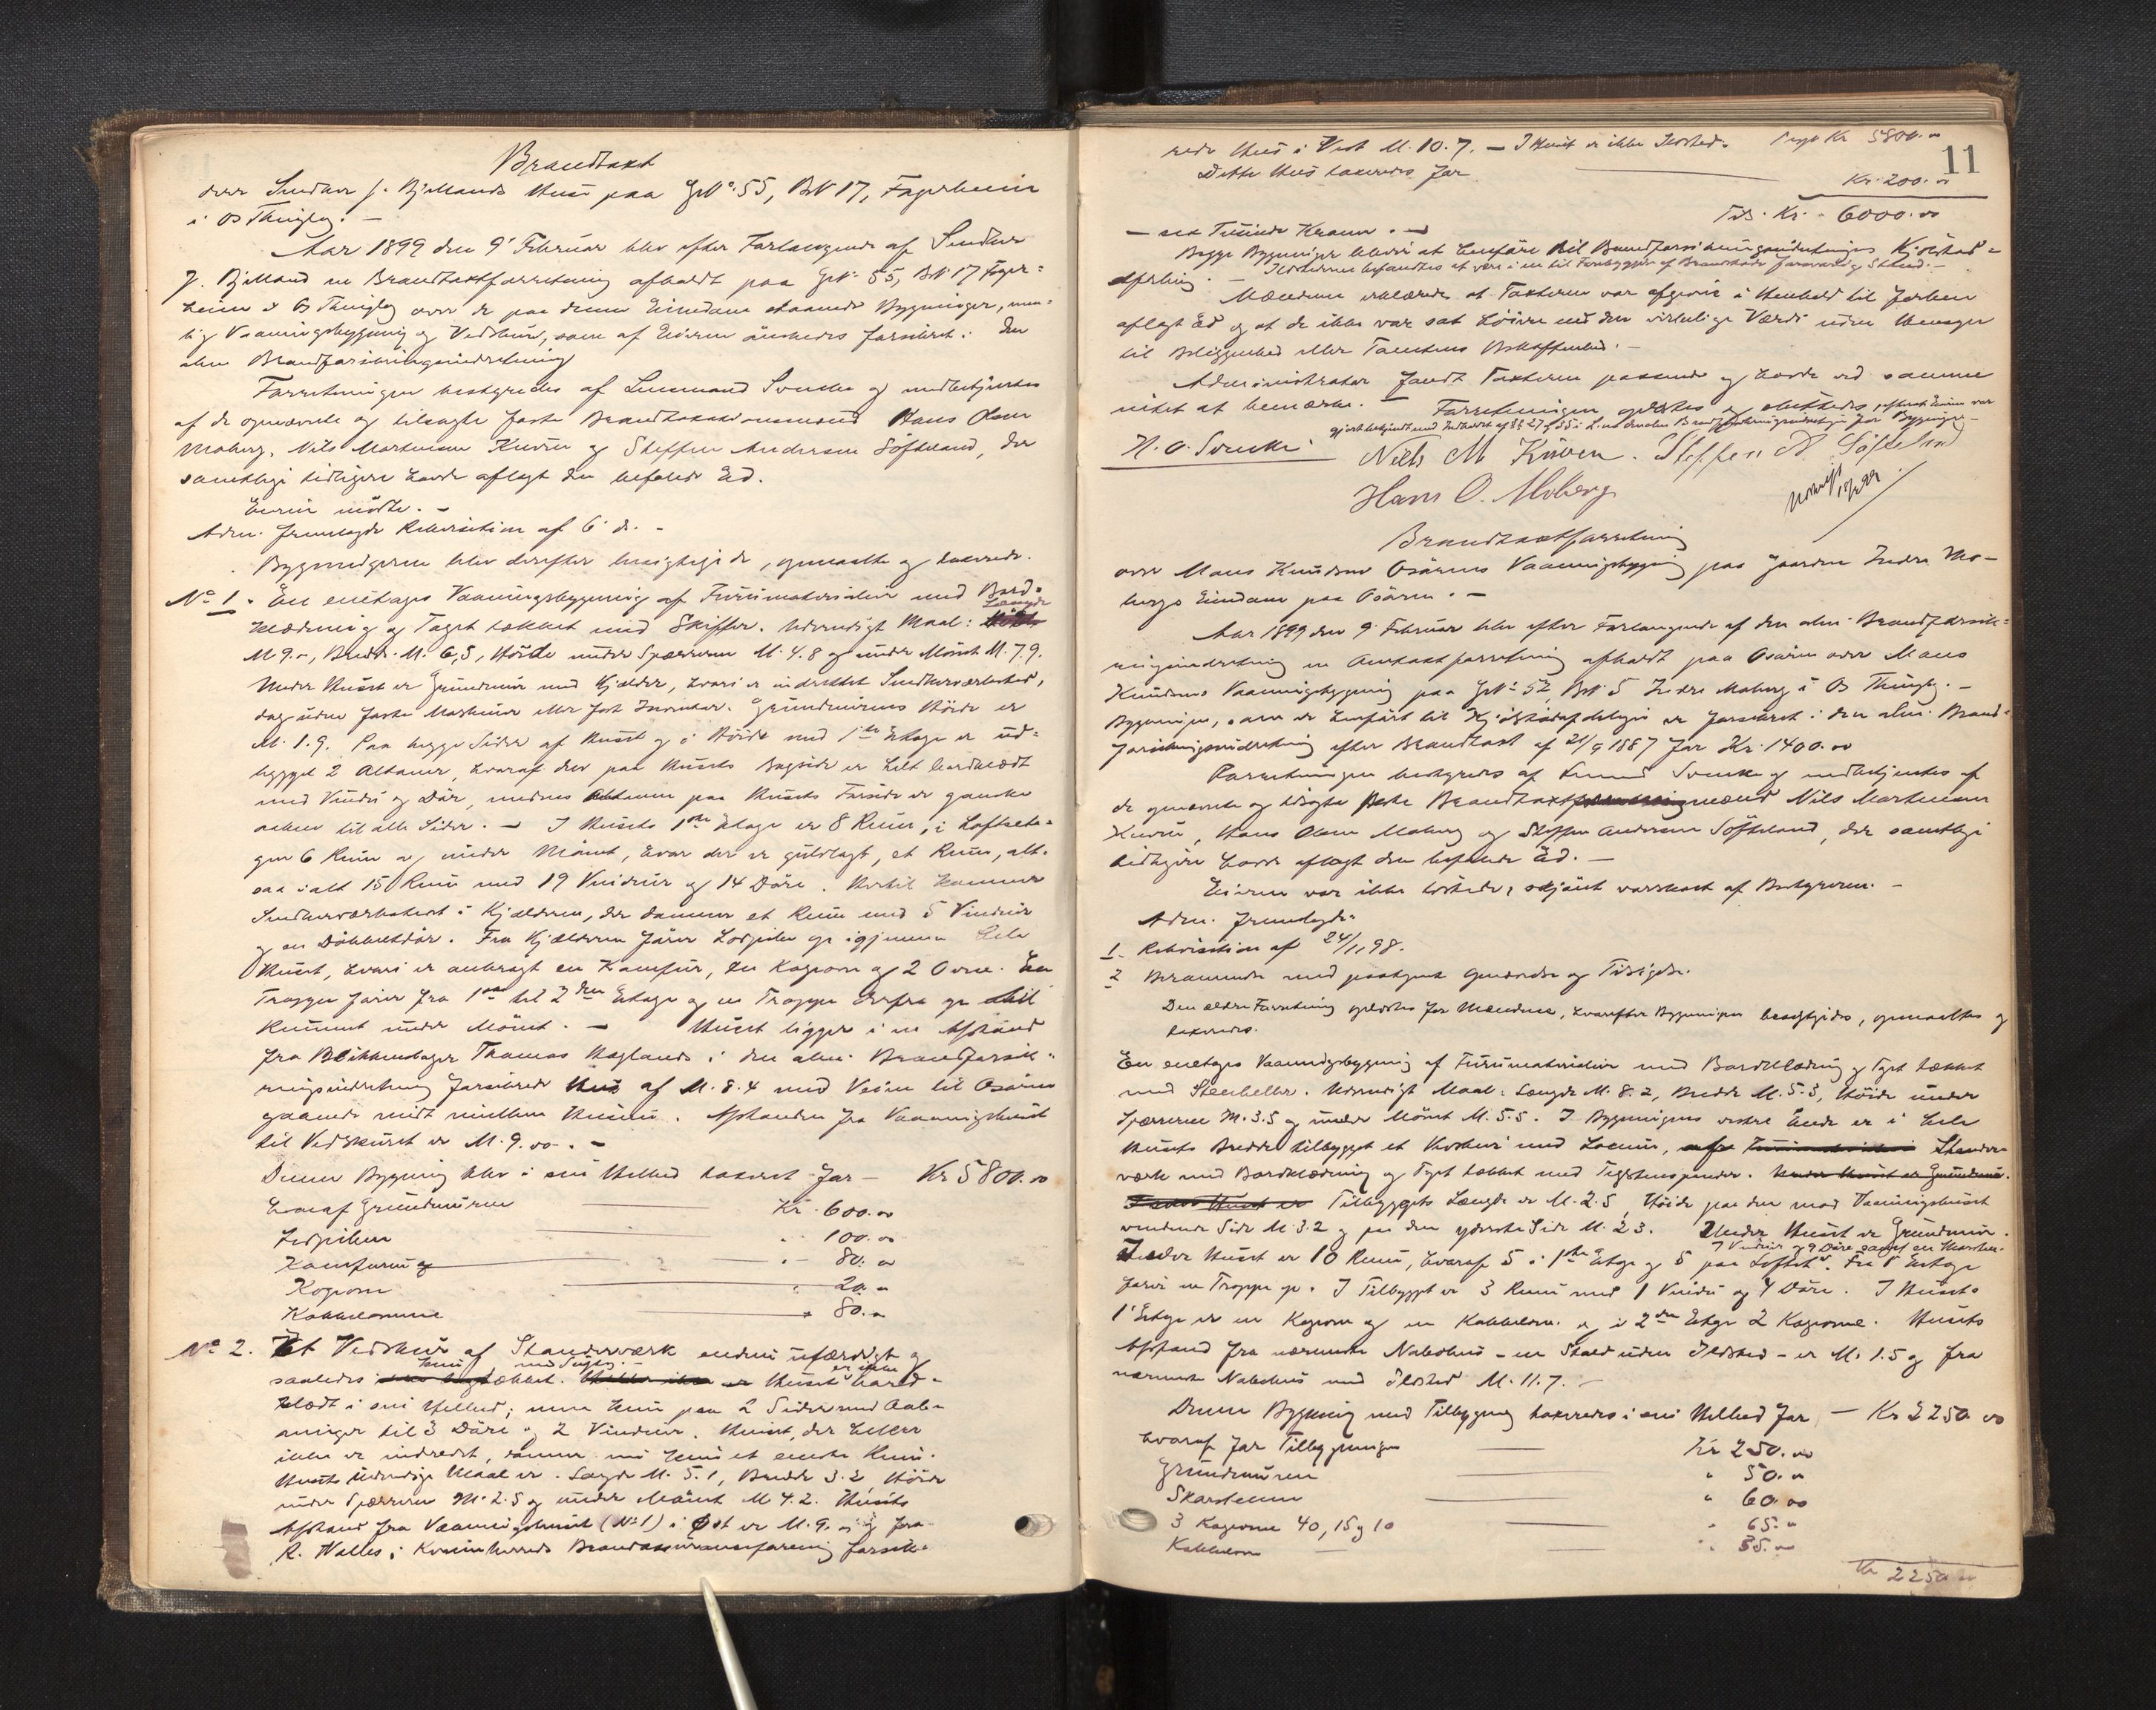 Brandtaxt
over Snedker J. Bjellands Huse paa Gr№ 55, Br№ 17, Fagerheim
i Os Thinglag. –
Aar 1899 den 9' Februar blev efter Forlangende af Snedker
J. Bjelland en Brandtaxtforretning afholdt paa Gr№ 55, Br№ 17 Fager-
heim i Os Thinglag over de paa denne Eiendom staaende Bygninger, nem-
lig Vaaningsbygning og Vedskur, som af Eieren önskedes forsikret i den
alm. Brandforsikringsindretning
Forretningen bestyredes af Lensmand Svenke og medbetjentes
af de opnævnte og tilsagte faste Brandtaxtmænd Hans Olsen
Moberg, Nils Martinsen Kuven og Steffen Andersen Söfteland, der
samtlige tidligere havde aflagt den befalede Ed.
Eieren mödte. –
Adm. fremlagde Rekvisition af 6' ds. –
Bygningerne blev derefter besigtigede, opmaalte og taxerede.
№ 1. En enetages Vaaningsbygning af Furumaterialier med Bord-
klædning og Taget tækket med Skiffer. Udvendigt Maal: Længde
M. 9.–, Bredde M. 6,5, Höide under Spærrerne M. 4.8 og under Mönet M. 7.9.
Under Huset er Grundmur med Kjælder, hvori er indrettet Snedkerværksted,
dog uden faste Maskiner eller fast Inventar. Grundmurens Höide er
M. 1.9. Paa begge Sider af Huset og i Höide med 1ste Etage er ud-
bygget 2 Altaner, hvoraf den paa Husets Bagside er helt bordklædt
med Vindu og Dör, medens Altanen paa Husets Forside er ganske
aaben til alle Sider. – I Husets 1ste Etage er 8 Rum, i Loftseta-
gen 6 Rum og under Mönet, hvor der er gulvlagt, et Rum, alt-
saa ialt 15 Rum med 19 Vinduer og 14 Döre. Hertil kommer
Snedkerværkstedet i Kjælderen, der danner et Rum med 5 Vinduer
og en Dobbeltdör. Fra Kjælderen förer Lodpiber op igjennem hele
Huset, hvori er anbragt en Komfur, en Kogeovn og 2 Ovne. En
Trappe förer fra 1ste til 2den Etage og en Trappe derfra op til
Rummet under Mönet. – Huset ligger i en Afstand
fra Blikkenslager Thomas Haglands i den alm. Brandforsik-
ringsindretning forsikrede Hus af M. 8.4 med Veien til Osören
gaaende midt mellem Husene. Afstanden fra Vaaningshuset
til Vedskuret er M. 9.00. –
Denne Bygning blev i sin Helhed taxeret for – Kr 5800.00
hvoraf Grundmuren Kr. 600.00
Lodpiben " 100.00
Komfuren " 80.00
Kogeovn " 20.00
Kakkelovnene " 80.00
№ 2. Et Vedskur af Standerværk endnu ufærdigt og
saaledes kun tækket med Sutag. – Huset er ikke bord-
klædt i sin Helhed; men kun paa 2 Sider med Aab-
ninger til 3 Döre og 2 Vinduer. Huset, der heller
ikke er indredet, danner nu kun et eneste Rum.
Husets udvendige Maal er: Længde M. 5.1, Bredde 3.2, Höide
under Spærrerne M. 2.5 og under Mönet M 4.2. Husets
Afstand fra Vaaningshuset (№ 1) i Öst er M. 9.00 og fra
R. Walles i Kvinnherreds Brandassuranceforening forsik-
rede Hus i Vest M. 10.7. – I Huset er ikke Ildsted. Trsp Kr 5800.00
11
Dette Hus taxeredes for Kr. 200.00
Tils. Kr. 6000.00
– sex Tusinde Kroner. –
Begge Bygninger bliver at henföre til Brandforsikringsindretningens Kjöbstad-
Ildstederne befandtes at være i en til Forebyggelse af Brandskade forsvarlig Stand. –
afdeling. –
Mændene erklærede at Taxterne var afgivne i Henhold til forhen
aflagt Ed og at de ikke var sat höiere end den virkelige Værdi uden Hensyn
til Beliggenhed eller Tomtens Beskaffenhed. –
Administrator fandt Taxterne passende og havde ved samme
intet at bemærke. – Forretningen oplæstes og sluttedes, efterat Eieren var
gjort bekjendt med Indholdet af §§ 27 og 35 i Lov om den alm Brandforsikringsindretningen for Bygninger. –
H. O. Svenke Niels M Kuven. Steffen A. Söfteland
Hans O. Moberg
Brandtaxtforretning
over Mons Knudsens Osörens Vaaningsbygning paa Gaarden Indre Mo-
bergs Eiendom paa Osören. –
Aar 1899 den 9' Februar blev efter Forlangende af den alm. Brandforsik-
ringsindretning en Omtaxtforretning afholdt paa Osören over Mons
Knudsens Vaaningsbygning paa Gr№ 52, Br№ 5 Indre Moberg i Os Thinglag. –
Bygningen, som er henfört til Kjöbstadafdelingen er forsikret i den alm. Brand-
forsikringsindretning efter Brandtaxt af 21/9 1887 for Kr. 1400.00
Forretningen bestyredes af Lensmd Svenke og medbetjentes af
de opnævnte og tilsagte faste Brandtaxtmænd Nils Martinsen
Kuven, Hans Olsen Moberg og Steffen Andersen Söfteland, der samtlige
tidligere havde aflagt den befalede Ed. –
Eieren var ikke tilstede, skjönt varskoet af Bestyreren. –
Adm. fremlagde:
1. Rekvisition af 24/1 98.
2 Berammelse med paategnet Opnævnelse og Tilsigelse.
Den ældre Forretning oplæstes for Mændene, hvorefter Bygningen besigtigedes, opmaaltes og
taxeredes.
En enetages Vaaningsbygning af Furumaterialier med Bordklædning og Taget tækket
med Steenheller. Udvendigt Maal: Længde M. 8.2, Bredde M. 5.3, Höide under
Spærrerne M. 3.5 og under Mönet M. 5.5. I Bygningens vestre Ende er i hele
Husets Bredde tilbygget et Vaskeri med Locum, Stander-
værk med Bordklædning og Taget tækket med Teglstenspander.
Tilbyggets Længde er M. 2.5, Höide paa den mod Vaaningshuset
vendende Side M 3.2 og paa den yderste Side M. 2.3. Under Huset er Grundmur.
I Huset er 10 Rum, hvoraf 5 i 1ste Etage og 5 paa Loftet, 7 Vinduer og 9 Döre samt en Skorsten. Fra 1' Etage
förer en Trappe op. I Tilbygget er 3 Rum med 1 Vindu og 4 Döre. I Husets
1' Etage er en Kogeovn og en Kakkelovn og i 2den Etage 2 Kogeovne. Husets
Afstand fra nærmeste Nabohus – en Stald uden Ildsted – er M. 1.5 og fra
nærmeste Nabohus med Ildsted M. 11.7. –
Denne Bygning med Tilbygning taxeredes i sin Helhed for – Kr 2250 00
hvoraf for Tilbygningen Kr 250.00
Grundmuren " 50.00
Skorstenen " 60.00
3 Kogeovne 40, 15 og 10 " 65.00
Kakkelovn " 35.00
Kr 2250.00